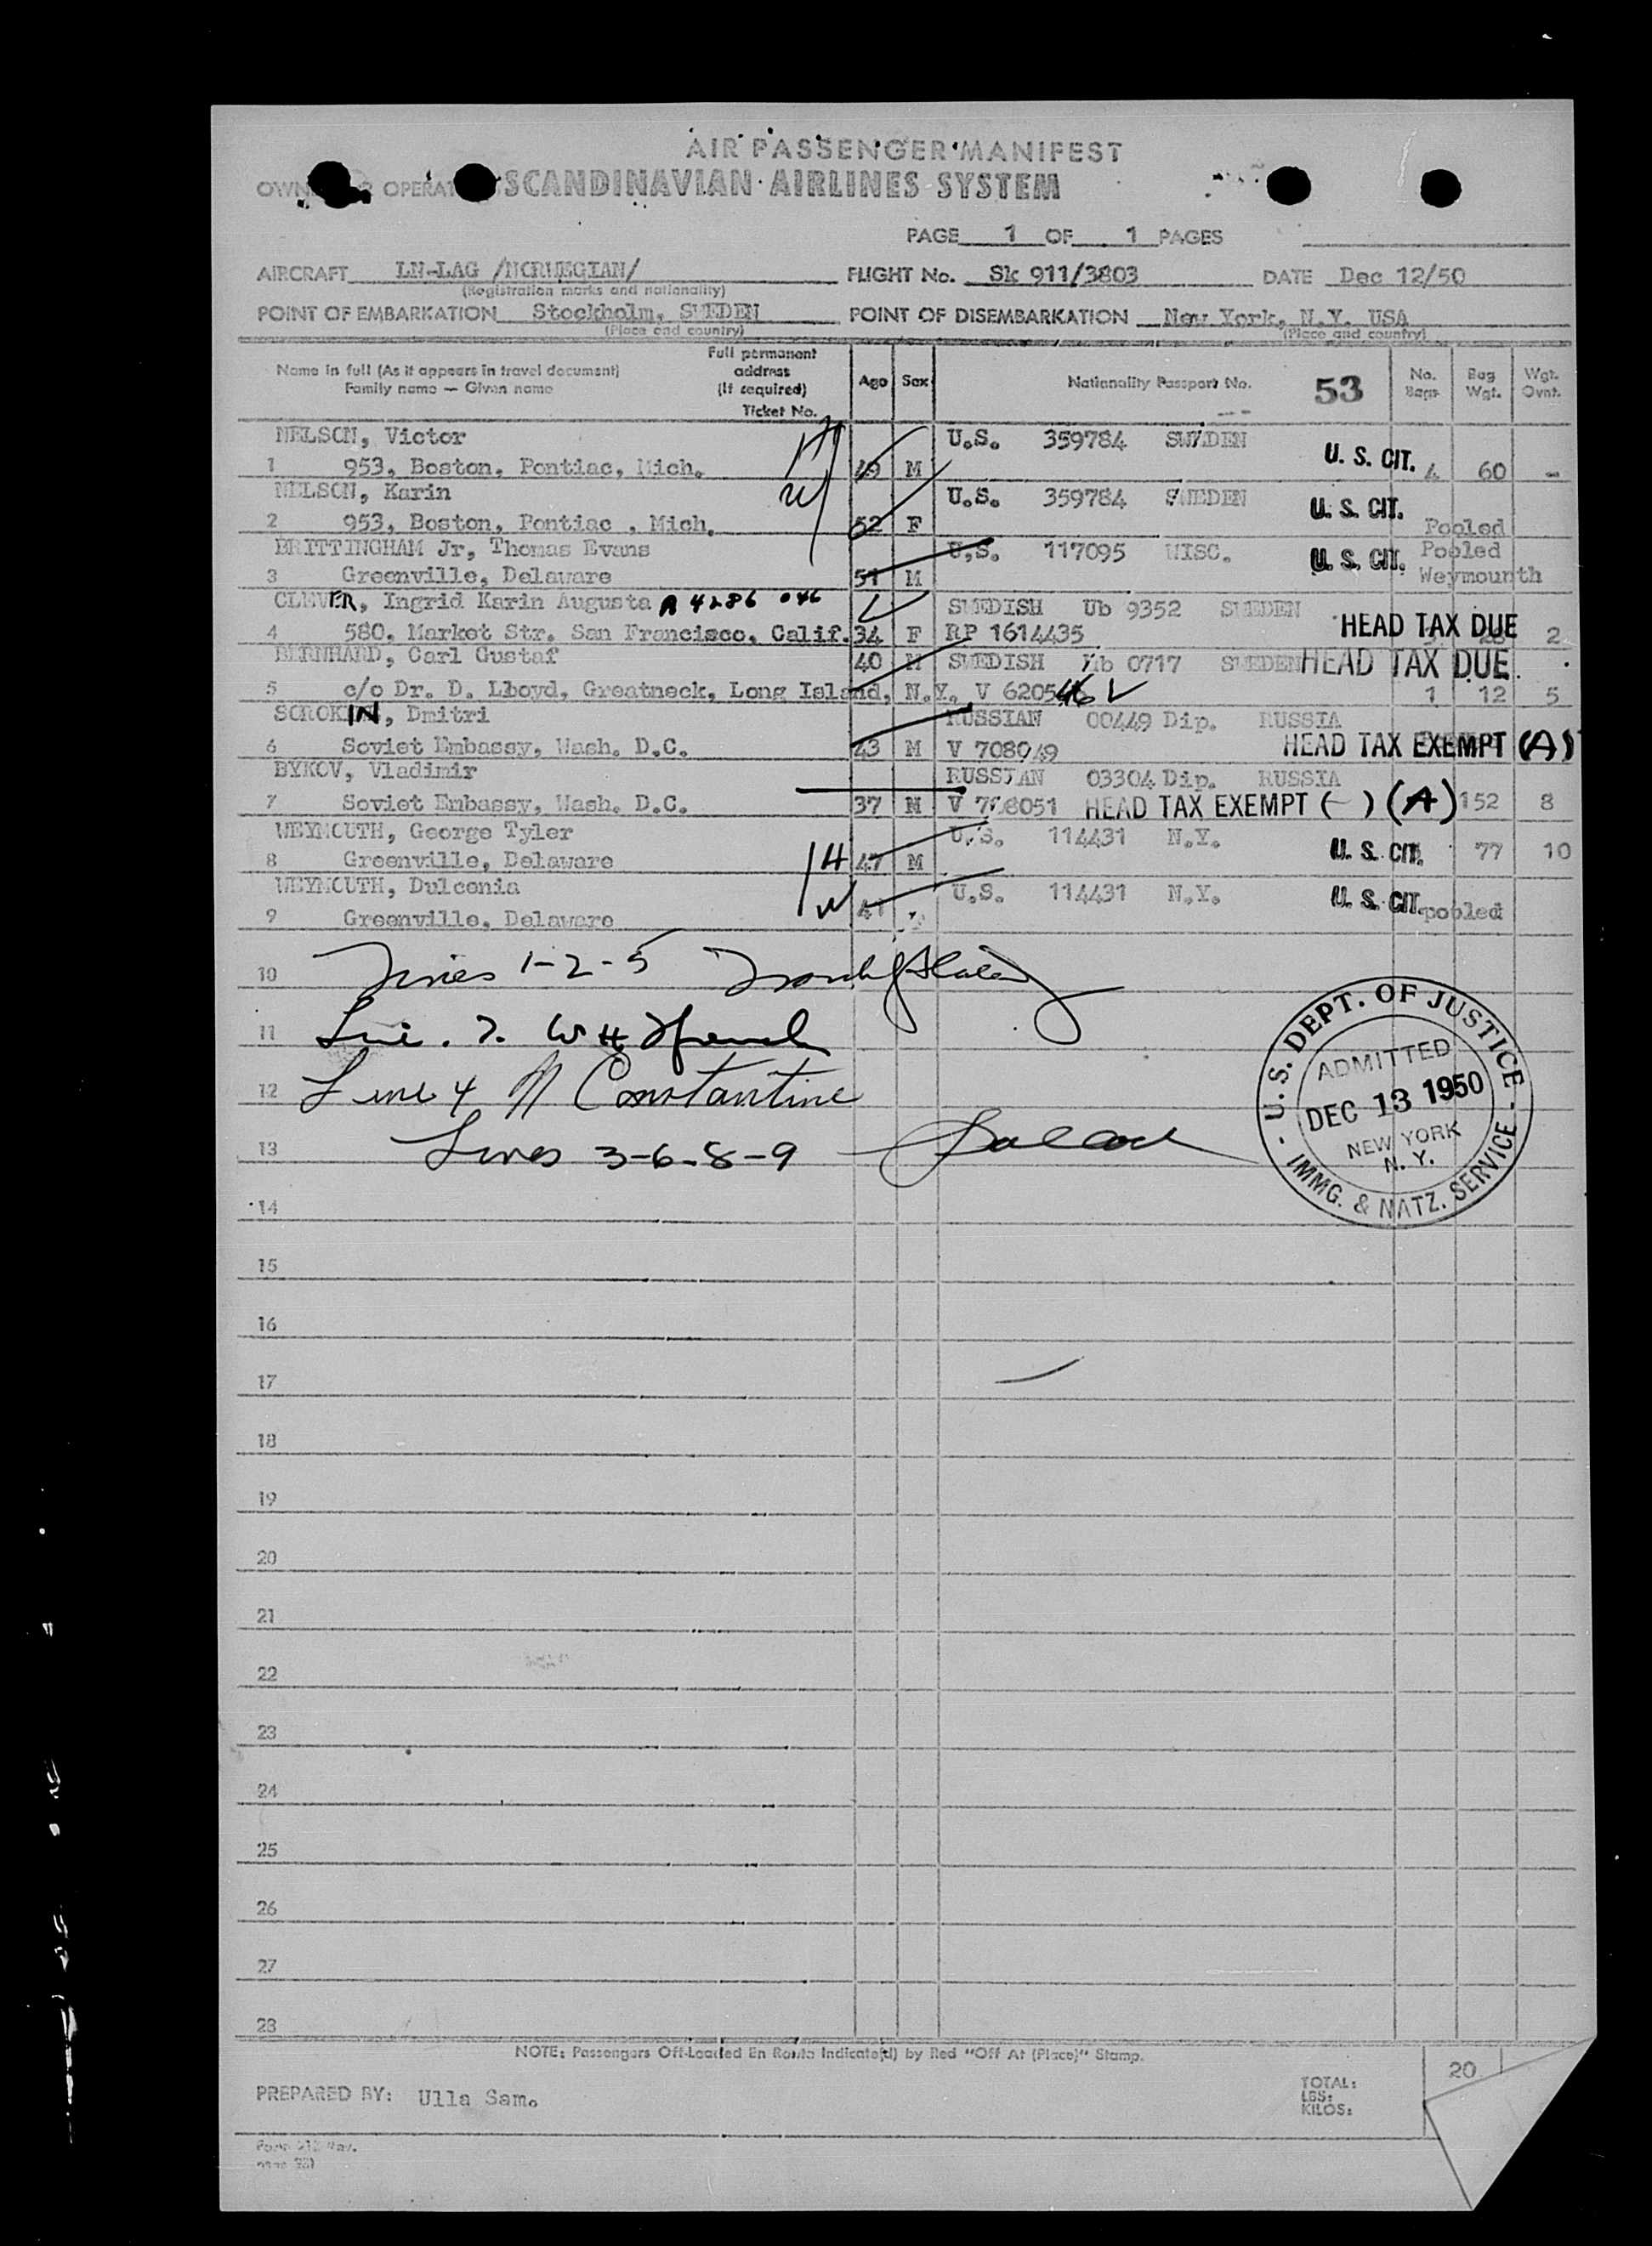 AIR PASSENGER MANIFEST
OPERAT SCANDINAVIAN AIRLINES SYSTEM
PAGE 1 OF 1 PAGES
AIRCRAFT LN-LAG /NORWEGIAN/ FLIGHT No. Sk 911/3803 DATE Dec 12/50
(Registration marks and nationality)
POINT OF EMBARKATION Stockholm, SWEDEN POINT OF DISEMBARKATION New York, N.Y. USA
(Place and country) (Place and country)
Name in full (As it appears in travel document) Full permanent address (If required) Age Sex Nationality Passport No. 53 No. Bags Bag Wgt. Wgt. Ovnt.
Family name — Given name Ticket No.
NELSON, Victor H U.S. 359784 SWEDEN
1 953, Boston, Pontiac, Mich. 49 M U. S. CIT. 4 60 -
NELSON, Karin W U.S. 359784 SWEDEN
2 953, Boston, Pontiac , Mich. 52 F U. S. CIT. Pooled
BRITTINGHAM Jr, Thomas Evans U.S. 117095 WISC. U. S. CIT. Pooled
3 Greenville, Delaware 51 M Weymounth
CLEVER, Ingrid Karin Augusta A 4286 046 SWEDISH Ub 9352 SWEDEN
4 580, Market Str. San Francisco, Calif. 34 F RP 1614435 HEAD TAX DUE 2
BERNHARD, Carl Gustaf 40 M SWEDISH 0717 SWEDEN HEAD TAX DUE
5 c/o Dr. D. Lloyd, Greatneck, Long Island, N.Y. V 620546 1 12 5
SOROKIN, Dmitri RUSSIAN 00449 Dip. RUSSIA
6 Soviet Embassy, Wash. D.C. 43 M V 708049 HEAD TAX EXEMPT (A)
BYKOV, Vladimir RUSSIAN 03304 Dip. RUSSIA
7 Soviet Embassy, Wash. D.C. 37 M V 708051 HEAD TAX EXEMPT ( ) (A) 152 8
WEYMOUTH, George Tyler U.S. 114431 N.Y.
8 Greenville, Delaware H 47 M U. S. CIT. 77 10
WEYMOUTH, Dulcenia U.S. 114431 N.Y.
9 Greenville, Delaware W 41 U. S. CIT. pooled
10 Lines 1-2-5
11 Line . 7. W H French
12 Line 4 N Constantine
13 Lines 3-6-8-9
U.S. DEPT. OF JUSTICE
ADMITTED
DEC 13 1950
NEW YORK
N. Y.
IMMG. & NATZ. SERVICE
14
15
16
17
18
19
20
21
22
23
24
25
26
27
28
NOTE: Passengers Off-Loaded En Route Indicate(d) by Red "Off At (Place)" Stamp.
PREPARED BY: Ulla Sam. TOTAL: 20
LBS:
KILOS: